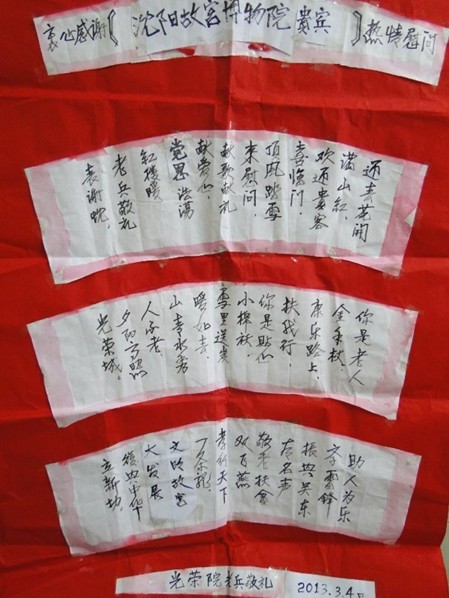 衷心感谢《沈阳故宫博物院贵宾》热情慰问
还去花开
满山红，
欢迎贵客
喜临门，
顶风踏雪
来慰问，
献歌献礼
献爱心，
党恩浩荡
红缨暖
老兵敬礼
表谢忱。
你是老人
金手杖，
康乐路上
扶我行，
你是贴心
小棉袄，
雪里送炭
暖如春
山青水秀
人不老
夕阳
光荣城。
助人为乐
学雷锋
振兴关东
有名声
敬老扶贫
双百燕
孝行天下
文明故宫
大发展
复兴中华
立新功。
光荣院老兵敬礼
2013.3.4日